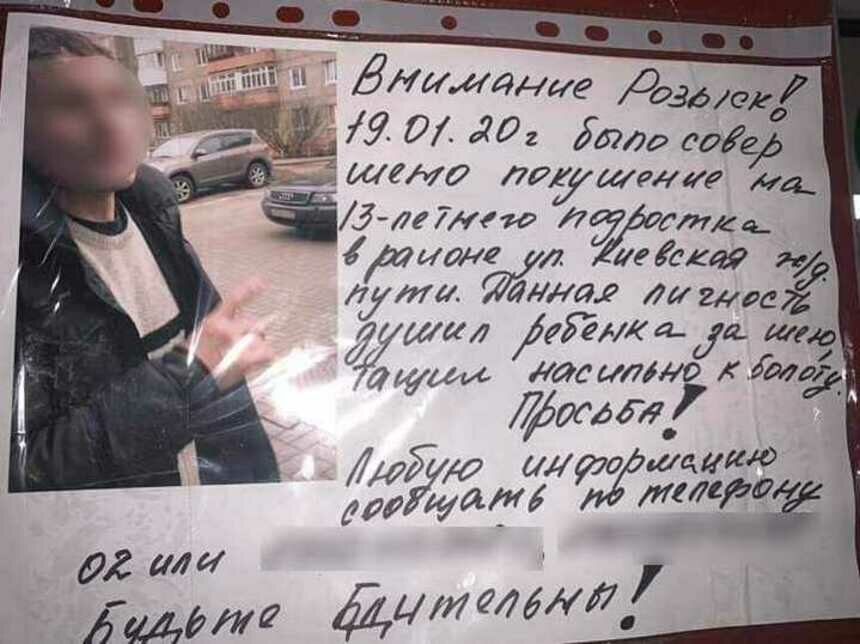 Внимание Розыск!
19.01.20г было совер
шено покушение на
13-летнего подростка
в районе ул. Киевская ж/д.
пути. Данная личность
душил ребенка за шею,
тащил насильно к болоту.
Просьба!
Любую информацию
сообщать по телефону
02 или
Будьте Бдительны!